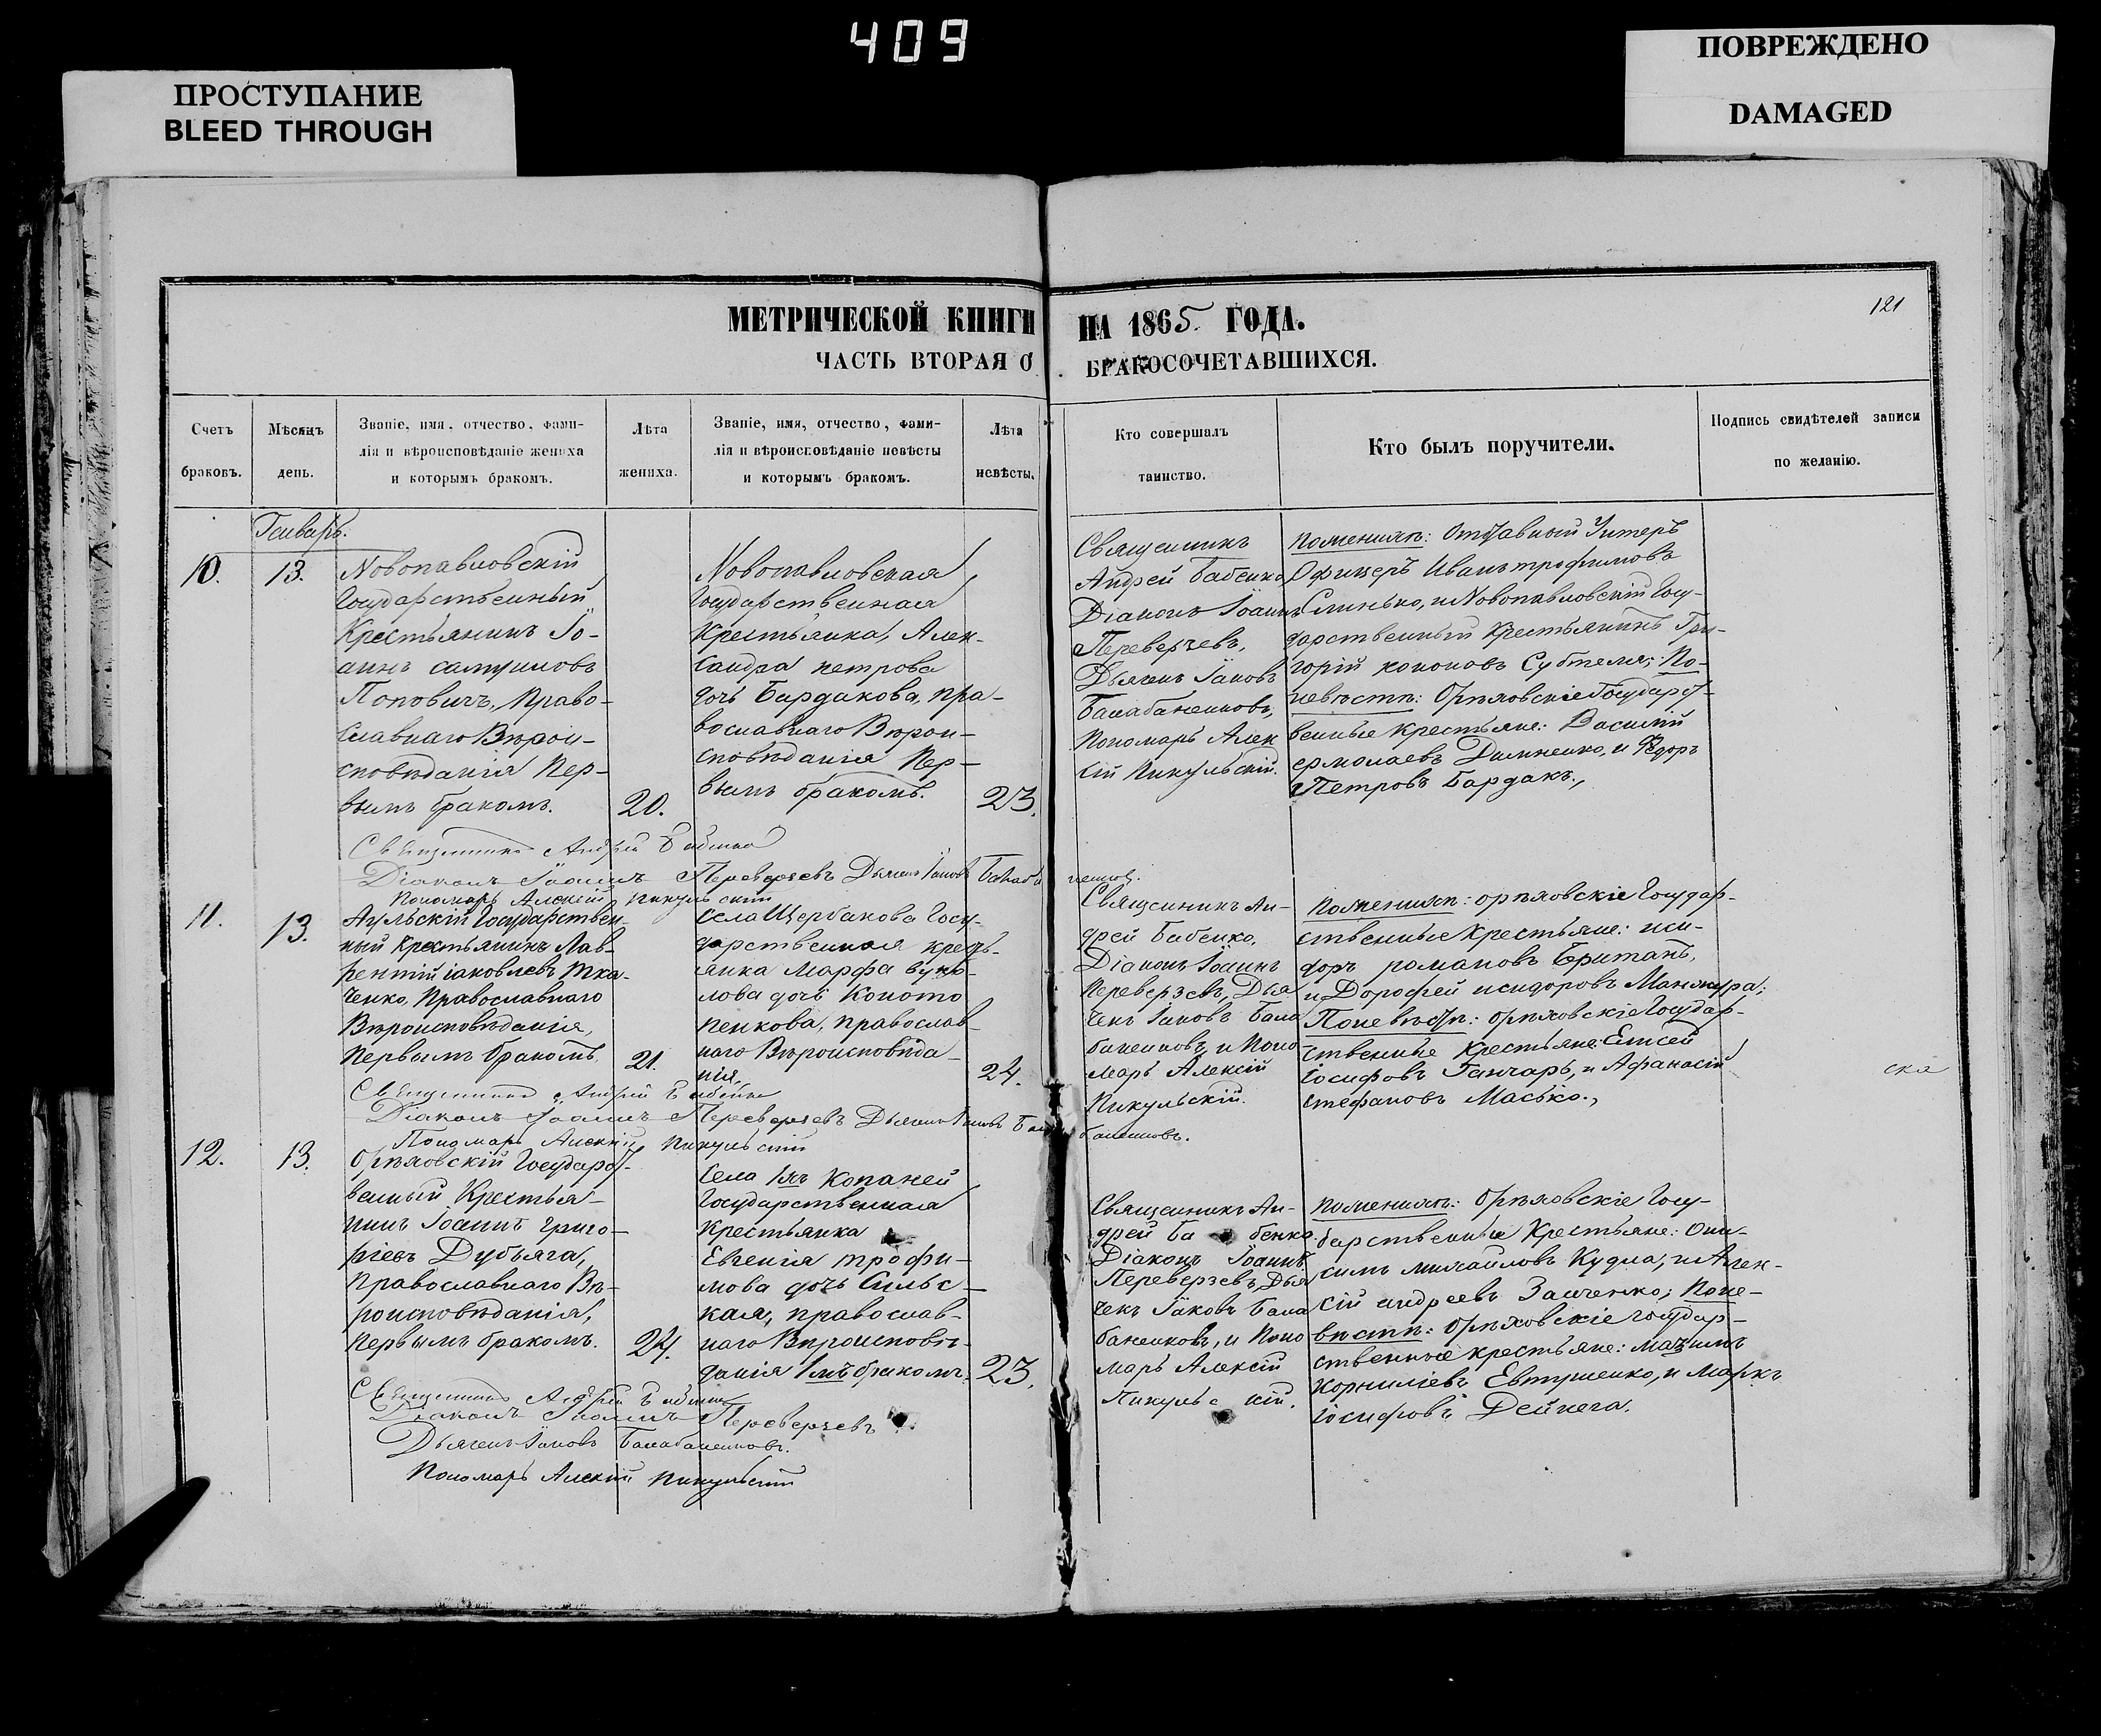 409
ПРОСТУПАНИЕ
BLEED THROUGH
ПОВРЕЖДЕНО
DAMAGED
121
МЕТРИЧЕСКОЙ КНИГИ НА 1865 ГОДА.
ЧАСТЬ ВТОРАЯ О БРАКОСОЧЕТАВШИХСЯ.
Счетъ
браковъ.
Мѣсяцъ
день.
Званіе, имя, отчество, фами-
лія и вѣроисповѣданіе жениха
и которымъ бракомъ.
Лѣта
жениха.
Званіе, имя, отчество, фами-
лія и вѣроисповѣданіе невѣсты
и которымъ бракомъ.
Лѣта
невѣсты.
Кто совершалъ
таинство.
Кто былъ поручители.
Подпись свидѣтелей записи
по желанію.
Генварь.
10.
13.
Новопавловскій
Государственный
Крестьянинъ Іо-
аннъ
Поповичъ, Право-
славнаго Вѣрои-
сповѣданія Пер-
вымъ бракомъ.
20.
Новопавловская
Государственная
Крестьянка, Алек-
сандра петрова
дочь Бардакова, пра-
вославнаго Вѣрои-
сповѣданія Пер-
вымъ бракомъ.
23.
Священникъ
Андрей Бабенко
Діаконъ Іоаннъ
Переверзевъ,
Дьячекъ Іаковъ
Балабаненковъ,
Пономарь Алек
сій Пикульскій.
По женихѣ: Отставной Унтеръ
Офицеръ Иванъ трофимовъ
Слинько, и Новопавловскій Госу-
дарственный Крестьянинъ Гри-
горій кононовъ Субтеля; По-
невѣстѣ: Орѣховскіе Государст-
венные крестьяне: Василій
ермолаевъ Дымненко, и Федоръ
Петровъ Бардакъ.,
Священникъ Андрей Бабенко
Діаконъ Іоаннъ Переверзевъ Дьячекъ Іаковъ Балаба
ненков.
Пономарь Алексій Пикульскій
11.
13.
Аульскій Государствен-
ный крестьянинъ Лав-
рентій іаковлевъ Тка-
ченко, Православнаго
Вѣроисповѣданія,
первымъ бракомъ.
21.
Села Щербакова Госу-
дарственная кресть-
янка Марфа
лова дочь Коното
пенкова, православ-
наго Вѣроисповѣда-
нія,
24.
Священникъ Ан-
дрей Бабенко,
Діаконъ Іоаннъ
Переверзевъ, Дья
чекъ Іаковъ Бала
баненковъ и Поно-
марь Алексій
Пикульскій.
По женихѣ: орѣховскіе Государ-
ственные крестьяне: иси-
доръ романовъ Британъ,
и Дорофей исидоровъ Манжура;
По невѣстѣ: орѣховскіе Государ-
ственные Крестьяне: Елисей
Іосифовъ Ганчаръ, и Афанасій
стефановъ Масько.,
ская
Священникъ Андрей Бабенко
Діаконъ Іоаннъ Переверзевъ Дьячекъ Іаковъ Бала
баненковъ.
Пономарь Алексій Пикульскій
12.
13.
Орѣховскій Государст-
венный Крестья-
нинъ Іоаннъ григо-
ріевъ Дубъяга,
православнаго Вѣ-
роисповѣданія,
первымъ бракомъ.
24.
Села 1хъ Копаней
Государственная
Крестьянка
Евгенія трофи-
мова дочь Сильс-
кая, православ-
наго Вѣроисповѣ-
данія 1мъ бракомъ.
23.
Священникъ Ан-
дрей Бабенко.
Діаконъ Іоаннъ
Переверзевъ, Дья
чекъ Іаковъ Бала
баненковъ, и Поно
марь Алексій
Пикульскій.
По женихѣ: Орѣховскіе Госу-
дарственные Крестьяне: Они-
симъ михайловъ Кудла, и Алек-
сій андреевъ Заиченко; Поне-
вѣстѣ: Орѣховскіе государ-
ственные крестьяне: Махимъ
Корниліевъ Евтушенко, и Маркъ
Іосифовъ Дейнега.
Священникъ Андрей Бабенко
Діаконъ Іоаннъ Переверзевъ
Дьячекъ Іаковъ Балабаненковъ.
Пономарь Алексій Пикульскій